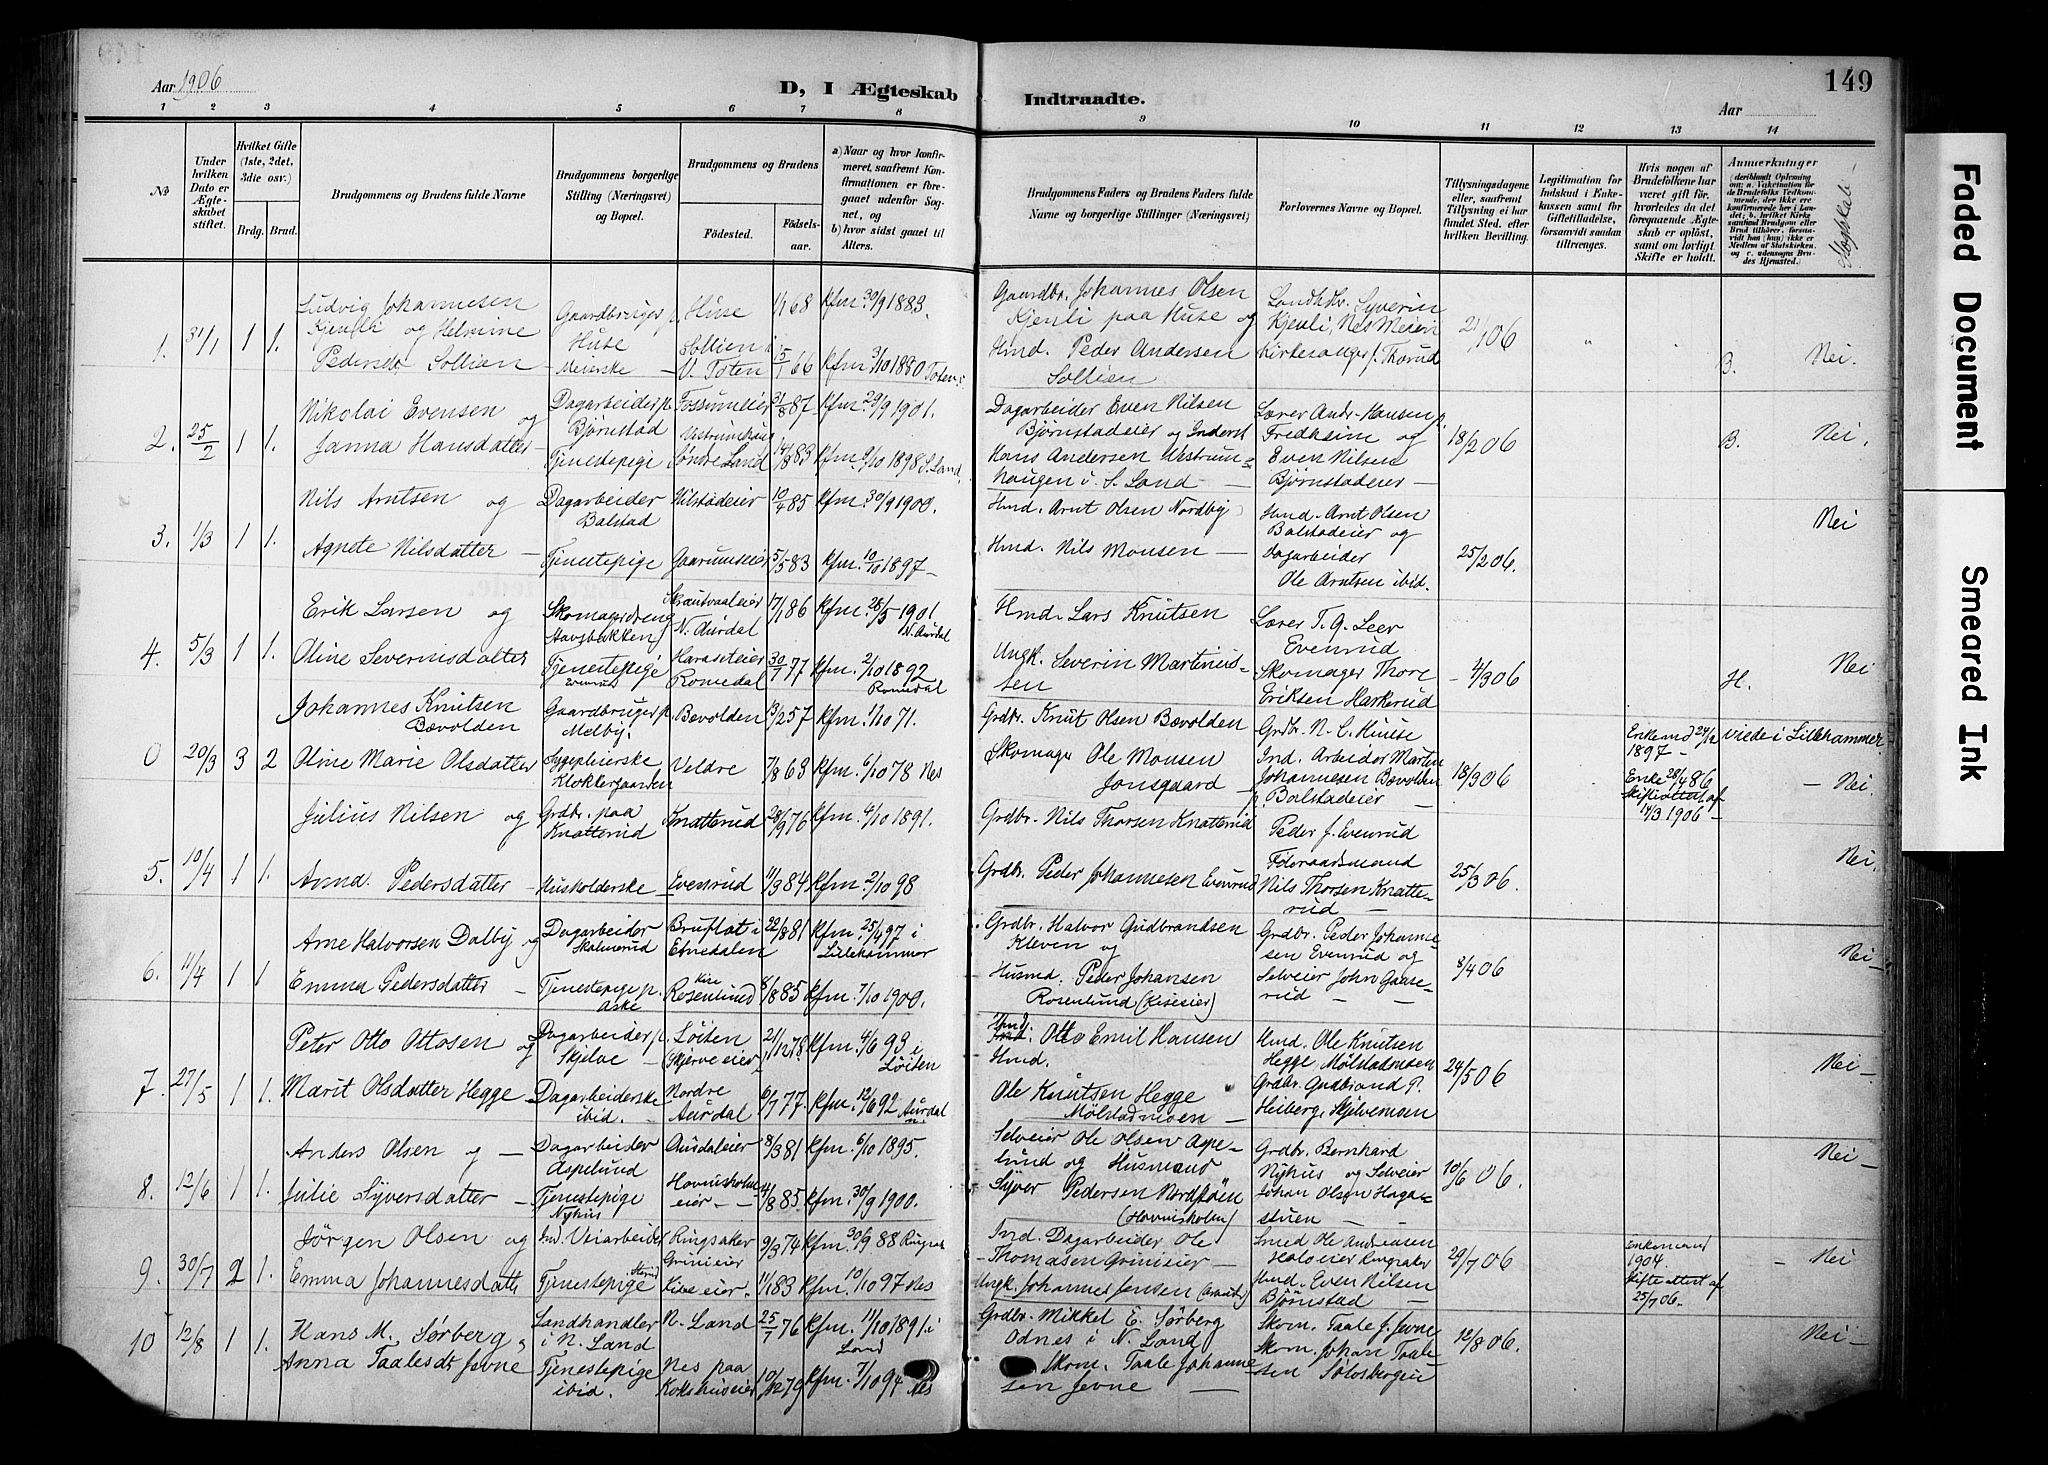 Aar 1906
D, I Ægteskab Indtraadte.
Aar
149
1 2 3 4 5 6 7 8 9 10 11 12 13 14
№
Under hvilken Dato er Ægteskabet stiftet.
Hvilket Gifte (1ste, 2det, 3die osv.)
Brdg. Brud.
Brudgommens og Brudens fulde Navne
Brudgommens borgerlige Stilling (Næringsvei) og Bopæl.
Brudgommens og Brudens
Födested.
Födselsaar.
a) Naar og hvor konfirmeret, saafremt Konfirmationen er foregaaet udenfor Sognet, og
b) hvor sidst gaaet til Alters.
Brudgommens Faders og Brudens Faders fulde Navne og borgerlige Stillinger (Næringsvei)
Forlovernes Navne og Bopæl.
Tillysningsdagene eller, saafremt Tillysning ei har fundet Sted, efter hvilken Bevilling.
Legitimation for Indskud i Enkekassen samt for Giftetilladelse, forsaavidt saadan tiltrænges.
Hvis nogen af Brudefolkene har været gift för, hvorledes da det foregaaende Ægteskab er oplöst, samt om lovligt Skifte er holdt.
Anmerkninger
1. 31/1 1 1.
Ludvig Johannesen Kjenli og Helmine Pedersdr Sollien
Gaardbruger p. Huse
Meierske
Huse 1/1 68 kfm. 30/9 1883.
Sollien i V. Toten 15/1 66 kfm. 3/10 1880 Toten
Gaardbr. Johannes Olsen Kjenli paa Huse og
Hmd. Peder Andersen Sollien
Landhdr. Syverin Kjenli, Nes Meieri
Kirkesanger J. Thorud
21/1 06
B. Nei.
2. 25/2 1 1.
Nikolai Evensen og
Janna Hansdatter
Dagarbeider p. Bjørnstad
Tjenestepige
Fossumeier 21/8 87 kfm. 29/9 1901.
Vestrumhaug Søndre Land 14/8 83 kfm. 9/10 1898 S. Land
Dagarbeider Even Nilsen Bjørnstadeier og Inderst
Hans Andersen Westrumhaugen i S. Land
Lærer Andr. Hansen p. Fredheim og
Even Nilsen Bjørnstadeier
18/2 06
B. Nei.
3. 1/3 1 1.
Nils Arntsen og
Agnete Nilsdatter
Dagarbeider Balstad
Tjenestepige
Nilstadeier 10/4 85 kfm. 30/9 1900.
Gaarumseier 5/5 83 kfm. 10/10 1897
Hmd. Arnt Olsen Nordby
Hmd. Nils Monsen
Hmd. Arnt Olsen Balstadeier og
Dagarbeider Ole Arntsen ibid.
25/2 06.
Nei
4. 5/3 1 1.
Erik Larsen og
Oline Severinsdatter
Skomagerdreng Haugbakken
Tjenestepige Evenrud
Skrautvaaleier N. Aurdal 17/1 86 kfm. 26/5 1901 N. Aurdal
Haraseteier Romedal 30/7 77 kfm. 2/10 1892 Romedal
Hmd. Lars Knutsen
Ungk. Severin Martinussen
Lærer T. G. Leer Evenrud
Skomager Thore Eriksen Harkerud
4/3 06
H. Nei
0 20/3 3 2
Johannes Knutsen Bævolden
Oline Marie Olsdatter
Gaardbruger p. Melby.
Sygepleierske Klokkergaarden
Bævolden 13/2 57 kfm. 1/10 71.
Veldre 7/8 63 kfm. 6/10 78 Nes
Grdbr. Knut Olsen Bævolden
Skomager Ole Monsen Jonsgaard
Grdbr. N. C. Huuse
Ind. Arbeider Martin Johannesen Bævolden p. Balstadeier
18/3 06
Enkemd 24/12 1897
Enke 28/4 86 Skifteattest af 14/3 1906
viede i Lillehammer
Nei.
5. 10/4 1 1.
Julius Nilsen og
Anna Pedersdatter
Grdbr. paa Knatterud
Husholderske
Knatterud 28/9 76 kfm. 4/10 1891.
Evenrud 11/3 84 kfm. 2/10 98
Grdbr. Nils Thorsen Knatterud
Grdbr. Peder Johannesen Evenrud
Peder J. Evenrud
Føderaadsmand Nils Thorsen Knatterud
25/3 06.
Nei.
6. 11/4 1 1
Arne Halvorsen Dalby og
Emma Pedersdatter
Dagarbeider Skalmerud
Tjenestepige p. Aske
Bruflat i Etnedalen 22/8 81 kfm. 25/4 97 i Lillehammer
Kise Rosenlund 8/8 85 kfm. 7/10 1900.
Grdbr. Halvor Gudbrandsen Kleven og
Husmd. Peder Johansen Rosenlund (Kiseeier)
Grdbr. Peder Johannesen Evenrud og
Selveier John Gaaserud
8/4 06
Nei
7. 27/5 1 1.
Peter Otto Ottosen og
Marit Olsdatter Hegge
Dagarbeider p. Skjelve
Dagarbeiderske ibid.
Løiten Skjerveeier 21/12 78 kfm. 4/6 93 i Løiten
Nordre Aurdal 10/7 77. kfm. 12/6 92 N. Aurdal
Hmd. Otto Emil Hansen
Hmd. Ole Knutsen Hegge Mølstadmoen
Hmd. Ole Knutsen Hegge Mølstadmoen
Grdbr. Gudbrand P. Heiberg, Skjelvemoen
24/5 06
Nei
8. 12/6 1 1.
Anders Olsen og
Julie Syversdatter
Dagarbeider Aspelund
Tjenestepige Nyhus
Aurdaleier 8/3 81 kfm. 6/10 1895.
Hovinsholmeier 4/8 85. kfm. 30/9 1900.
Selveier Ole Olsen Aspelund og Husmand
Syver Pedersen Nordstøen (Hovinsholm)
Grdbr. Bernhard Nyhus og Selveier
Johan Olsen Hagastuen
10/6 06.
Nei
9. 30/7 2 1.
Jørgen Olsen og
Emma Johannesdatter
Ind. Veiarbeider
Tjenestepige
Ringsaker Grinieier 9/3 74 kfm. 30/9 88 Ringsaker
Kiseeier 11/1 83 kfm. 10/10 97 Nes
Ind. Dagarbeider Ole Thomasen Grinieier
Ungk. Johannes Jensen
Smed Ole Andreasen Haloeier Ringsaker
Hmd. Even Nilsen Bjørnstad
29/7 06
Enkemand 1904. Skifteattest af 25/7 06.
Nei
10 12/8 1 1.
Hans M. Sørberg
Anna Taalesdr Jevne
Landhandler i N. Land
Tjenestepige ibid.
N. Land 25/7 76 kfm. 11/10 1891 i Land
Nes paa Kokshuseier 10/12 79 kfm. 7/10 94 Nes
Grdbr. Mikkel E. Sørberg Odnes i N. Land
Skom. Taale Johannesen Jevne
Skom. Taale J. Jevne
Skom. Johan Taalesen Solosbergeie
12/8 06.
Nei
Faded Document
Smeared Ink